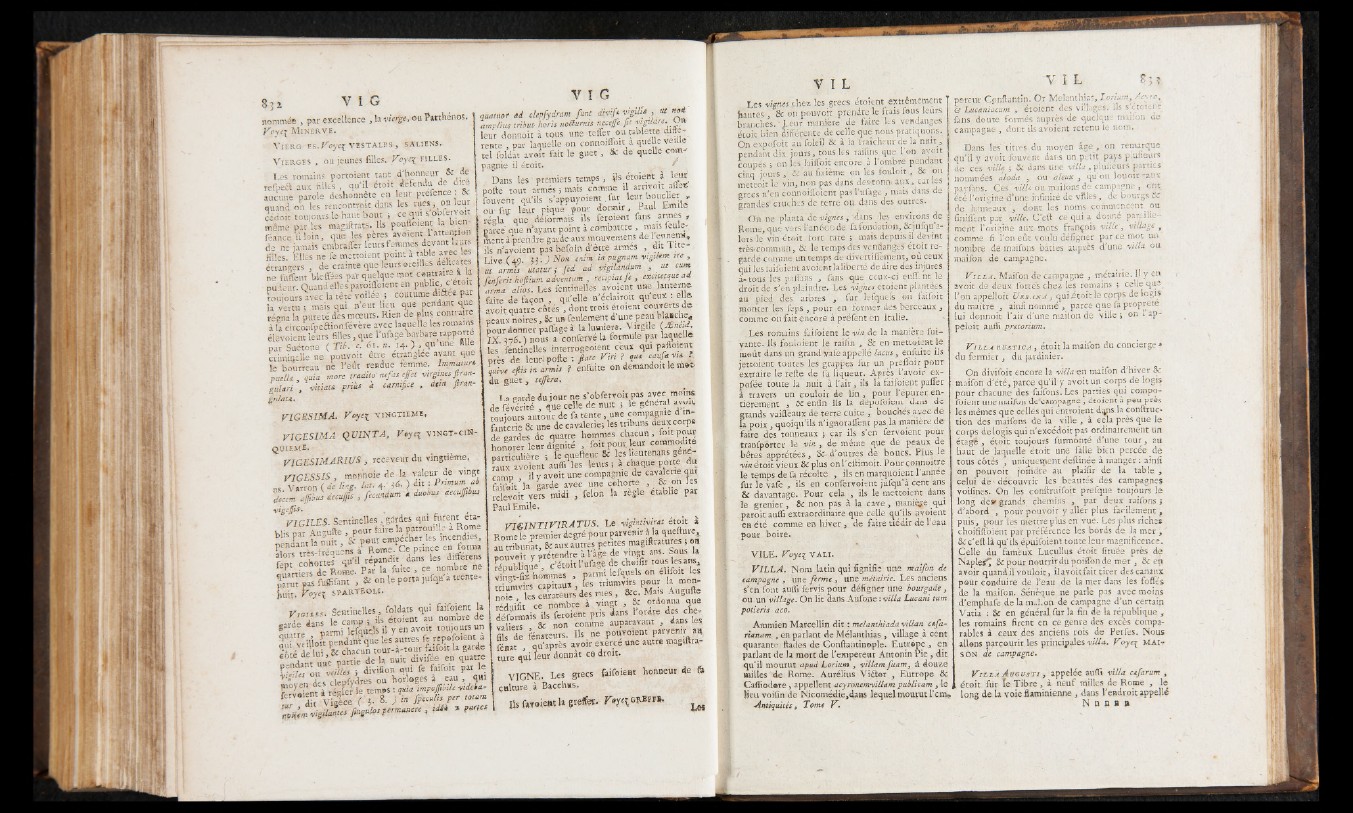 832 V I G
nommée, par excellence, la vierge, ou Parthénos.
Voyez MINERVE.
VIERGES. Voyez VESTALES, SALIENS.
VIERGES, ou jeunes filles. Voyez FILLES.
Les romains portoient tant d'honneur & de
respect aux filles, qu'il étoit défendu de dire
aucune parole deshonnête en leur présence : &
quand on les rencontroit dans les rues, on leur
cédoit toujours le haut bout ; ce qui s'observoit
même par les magistrats. Ils poussoient la bien-
séance si loin, que les pères avoient l'attention
de ne jamais embrasser leurs femmes devant leurs
filles. Elles ne se mettoient point à table avec les
étrangers, de crainte que leurs oreilles délicates
ne fussent blessées par quelque mot contraire à la
pudeur. Quand elles paroissoient en public, c'étoit
toujours avec la tête voilée ; coutume dictée par
la vertu ; mais qui n'eut lieu que pendant que
régna la pureté des mœurs. Rien de plus contraire
à la circonspection sévère avec laquelle les romains
élevoient leurs filles, que l'usage barbare rapporté
par Suétone (Tib. c. 61. n. 14.), qu'une fille
criminelle ne pouvoit être étranglée avant que
le bourreau ne l'eût rendue femme. Immaturæ
puellæ, quia more tradito nefas esset virgines stran-
gulari, vitiatæ priùs à carnifice, dein stran-
gulatæ.
VIGESIMA. Voyez VINGTIEME.
VIGESIMA QUINTA, Voyez VINGT-CIN-
QUIEME.
VIGESIMARIUS, receveur du vingtième.
VIGESSIS, monnoie de la valeur de vingt
as. Varron (de ling. lat. 4. 36.) dit : Primum ab
decem assibus decussis, secundum à duobus decussibus
vigessis.
VIGILES. Sentinelles, gardes qui furent éta-
blis par Auguste, pour faire la patrouille à Rome
pendant la nuit, & pour empêcher les incendies,
alors très-fréquens à Rome. Ce prince en forma
sept cohortes qu'il répandit dans les différens
quartiers de Rome. Par la suite, ce nombre ne
parut pas suffisant, & on le porta jusqu'à trente-
huit. Voyez SPARTEOLI.
VIGILES. Sentinelles, soldats qui faisoient la
garde dans le camp ; ils étoient au nombre de
quatre, parmi lesquels il y en avoit toujours un
qui veilloit pendant que les autres se reposoient à
côté de lui, & chacun tour-à-tour faisoit la garde
pendant une partie de la nuit divisée en quatre
vigiles ou veilles ; division qui se faisoit par le
moyen des clepsydres ou horloges à eau, qui
servoient à régler le temps : quia impossibile videba-
tur, dit Vigèce (3. 8.) in speculis per totam
noctem vigilantes singulos permanere, ideò in partes
V I G
quatuor ad clepsydram sunt divisæ vigiliæ, ut non
amplius tribus horis nocturnis necesse sit vigilare. On
leur donnoit à tous une tessere ou tablette diffé-
rente, par laquelle on connoissoit à quelle veille
tel soldat avoit fait le guet, & de quelle com-
pagnie il étoit.
Dans les premiers temps, ils étoient à leur
poste tout armés ; mais comme il arrivoit assez
souvent qu'ils s'appuyoient sur leur bouclier,
ou sur leur pique pour dormir, Paul Emile
régla que désormais ils seroient sans armes,
parce que n'ayant point à combattre, mais seule-
ment à prendre garde aux mouvemens de l'ennemi,
ils n'avoient pas besoin d'être armés, dit Tite-
Live (49. 33.) Non enim in pugnam vigilem ire,
ut armis utatur ; sed ad vigilandum, ut cum
senserit hostium adventum, recipiat se, excitetque ad
arma alios. Les sentinelles avoient une lanterne
faite de façon, qu'elle n'éclairoit qu'eux : elle
avoit quatre côtés, dont trois étoient couverts de
peaux noires, & un seulement d'une peau blanche,
pour donner passage à la lumiere. Virgile (Æneïd.
IX. 376.) nous a conservé la formule par laquelle
les sentinelles interrogeoient ceux qui passoient
près de leur poste : state Viri ? quæ causa viæ ?
quive estis in armis ? ensuite on demandoit le mot
du guet, tessera.
La garde du jour ne s'observoit pas avec moins
de sévérité, que celle de nuit ; le général avoit
toujours autour de sa tente, une compagnie d'in-
fanterie & une de cavalerie; les tribuns deux corps
de gardes de quatre hommes chacun, soit pour
honorer leur dignité, soit pour leur commodité
particulière ; le questeur & les lieutenans géné-
raux avoient aussi les leurs ; à chaque porte du
camp, il y avoit une compagnie de cavalerie qui
faisoit la garde avec une cohorte, & on les
relevoit vers midi, selon la règle établie par
Paul Emile.
VIGINTIVIRATUS. Le vigintivirat étoit à
Rome le premier degré pour parvenir à la questure,
au tribunat, & aux autres petites magistratures ; on
pouvoit y prétendre à l'âge de vingt ans. Sous la
république, c'étoit l'usage de choisir tous les ans,
vingt-six hommes, parmi lesquels on élisoit les
triumvirs capitaux, les triumvirs pour la mon-
noie, les curateurs des rues, &c. Mais Auguste
réduisit ce nombre à vingt, & ordonna que
désormais ils seroient pris dans l'ordre des che-
valiers, & non comme auparavant, dans les
fils de sénateurs. Ils ne pouvoient parvenir au
sénat, qu'après avoir exercé une autre magistra-
ture qui leur donnât ce droit.
VIGNE. Les grecs faisoient honneur de sa
culture à Bacchus.
Ils savoient la greffer. Voyez GREFFE.
Les
V I L
Les vignes chez les grecs étoient extrêmement
hautes, & on pouvoit prendre le frais sous leurs
branches. Leur maniere de faire les vendanges
étoit bien différente de celle que nous pratiquons.
On exposoit au soleil & à la fraicheur de la nuit,
pendant dix jours, tous les raisins que l'on avoit
coupés ; on les laissoit encore à l'ombre pendant
cinq jours, & au sixième on les fouloit, & on
mettoit le vin, non pas dans des tonneaux, car les
grecs n'en connoissoient pas l'usage, mais dans de
grandes cruches de terre ou dans des outres.
On ne planta de vignes, dans les environs de
Rome, que vers l'an 600 de sa fondation, & jusqu'a-
lors le vin étoit fort rare ; mais depuis il devint
très-commun, & le temps des vendanges étoit re-
gardé comme un temps de divertissement, où ceux
qui les faisoient avoient la liberté de dire des injures
à tous les passans, sans que ceux-ci eussent le
droit de s'en plaindre. Les vignes étoient plantées
au pied des arbres, sur lesquels on faisoit
monter les seps, pour en former des berceaux,
comme on fait encore à présent en Italie.
Les romains faisoient le vin de la manière sui-
vante. Ils fouloient le raisin, & en mettoient le
moût dans un grand vase appellé lacus, ensuite ils
jettoient toutes les grappes sur un pressoir pour
extraire le reste de la liqueur. Après l'avoir ex-
posée toute la nuit à l'air, ils la faisoient passer
à travers un couloir de lin, pour l'épurer en-
tierement, & enfin ils la déposoient dans de
grands vaisseaux de terre cuite, bouchés avec de
la poix, quoiqu'ils n'ignorassent pas la manière de
faire des tonneaux ; car ils s'en servoient pour
transporter le vin, de même que de peaux de
bêtes apprêtées, & d'outres de boucs. Plus le
vin étoit vieux & plus on l'estimoit. Pour connoître
le temps de sa récolte, ils en marquoient l'année
sur le vase, ils en conservoient jusqu'à cent ans
& davantage. Pour cela, ils le mettoient dans
le grenier, & non pas à la cave, manière qui
paroit aussi extraordinaire que celle qu'ils avoient
en été comme en hiver, de faire tiédir de l'eau
pour boire.
VILE. Voyez VALI.
VILLA. Nom latin qui signifie une maison de
campagne, une ferme, une métairie. Les anciens
s'en sont aussi servis pour désigner une bourgade,
ou un village. On lit dans Ausone : villa Lucani tum
potieris aco.
Ammien Marcellin dit : melanthiada villam cæsa-
rianam, en parlant de Mélanthias, village à cent
quarante stades de Constantinople. Eutrope, en
parlant de la mort de l'empereur Antonin Pie, dit
qu'il mourut apud Lorium, villam suam, à douze
milles de Rome. Aurélius Victor, Eutrope &
Cassiodore, appellent acyronem villam publicam, le
lieu voisin de Nicomédie, dans lequel mourut l'em-
Antiquités, Tome V.
V I L 833
pereur Constantin. Or Melanthias, Lorium,
& Lucaniacum, étoient des villages. Ils s'étoient
sans doute formés auprès de quelque maison de
campagne, dont ils avoient retenu le nom.
Dans les titres du moyen âge, on remarque
qu'il y avoit souvent dans un petit pays plusieurs
de ces villæ ; & dans une villa, plusieurs parties
nommées aloda, ou aleux, qu'on louoit aux
paysans. Ces villæ ou maisons de campagne, ont
été l'origine d'une infinité de villes, de bourgs &
de hameaux, dont les noms commencent ou
finissent par ville. C'est ce qui a donné pareille-
ment l'origine aux mots françois ville, village,
comme si l'on eût voulu désigner par ce mot un
nombre de maisons bâties auprès d'une villa ou
maison de campagne.
VILLA. Maison de campagne, métairie. Il y en
avoit de deux sortes chez les romains ; celle que
l'on appelloit URBANA, qui étoit le corps de logis
du maître, ainsi nommé, parce que sa propreté
lui donnoit l'air d'une maison de ville ; on l'ap-
peloit aussi prætorium.
VILLA RUSTICA, étoit la maison du concierge,
du fermier, du jardinier.
On divisoit encore la villa en maison d'hiver &
maison d'été, parce qu'il y avoit un corps de logis
pour chacune des saisons. Les parties qui compo-
soient une maison de campagne, étoient à peu près
les mêmes que celles qui entroient dans la construc-
tion des maisons de la ville, à cela près que le
corps de logis qui n'excédoit pas ordinairement un
étage, étoit toujours surmonté d'une tour, au
haut de laquelle étoit une salle bien percée de
tous côtés, uniquement destinée à manger : ainsi
on pouvoit joindre au plaisir de la table,
celui de découvrir les beautés des campagnes
voisines. On les construisoit presque toujours le
long des grands chemins, par deux raisons ;
d'abord, pour pouvoir y aller plus facilement,
puis, pour les mettre plus en vue. Les plus riches
choisissoient par préférence les bords de la mer,
& c'est là qu'ils épuisoient toute leur magnificence.
Celle du fameux Lucullus étoit située près de
Naples, & pour nourrir du poisson de mer, & en
avoir quand il vouloit, il avoit fait tirer des canaux
pour conduire de l'eau de la mer dans les fossés
de la maison. Sénèque ne parle pas avec moins
d'emphase de la maison de campagne d'un certain
Vatia : & en général sur la fin de la république,
les romains firent en ce genre des excès compa-
rables à ceux des anciens rois de Perses. Nous
allons parcourir les principales villæ. Voyez MAI-
SON de campagne.
VILLA AUGUSTI, appelée aussi villa cesarum,
étoit sur le Tibre, à neuf milles de Rome, le
long de la voie flaminienne, dans l'endroit appellé
N n n n n